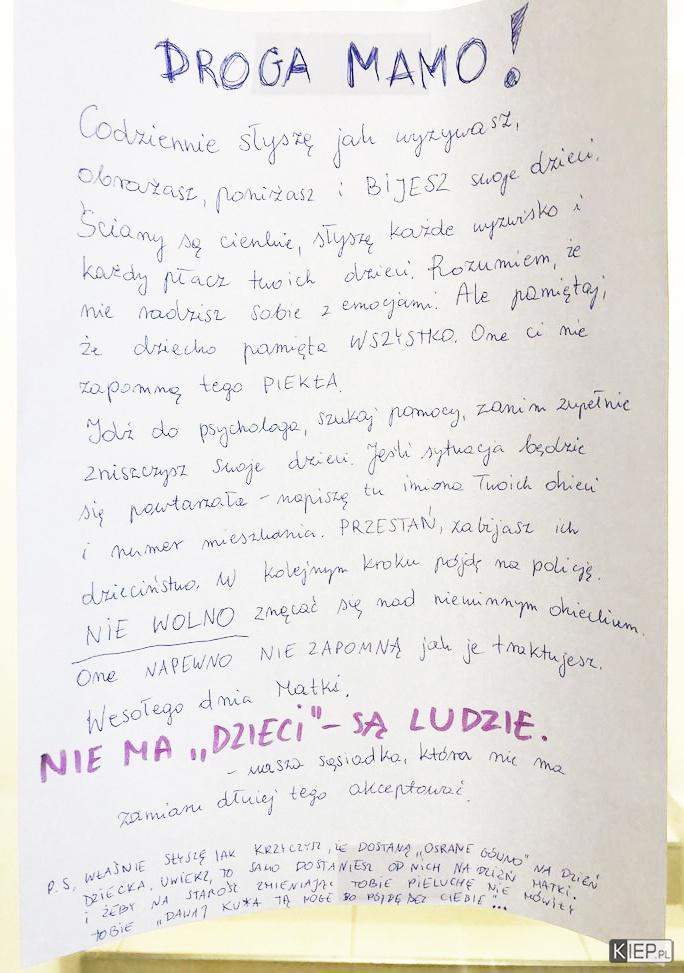 DROGA MAMO!
Codziennie słyszę jak wyzywasz,
obrażasz, poniżasz i BIJESZ swoje dzieci.
Ściany są cienkie, słyszę każde wyzwisko i
każdy płacz twoich dzieci. Rozumiem, że
nie radzisz sobie z emocjami. Ale pamiętaj,
że dziecko pamięta WSZYSTKO. One ci nie
zapomną tego PIEKŁA.
Idź do psychologa, szukaj pomocy, zanim zupełnie
zniszczysz swoje dzieci. Jeśli sytuacja będzie
się powtarzała - napiszę tu imiona Twoich dzieci
i numer mieszkania. PRZESTAŃ, zabijasz ich
dzieciństwo. W kolejnym kroku pójdę na policję.
NIE WOLNO znęcać się nad niewinnym dzieckiem.
One NAPEWNO NIE ZAPOMNĄ jak je traktujesz.
Wesołego dnia Matki.
NIE MA „DZIECI" - SĄ LUDZIE.
- wasza sąsiadka, która nie ma
zamiaru dłużej tego akceptować.
P.S. WŁAŚNIE SŁYSZĘ JAK KRZYCZYSZ, ŻE DOSTANĄ „OSRANE GÓWNO" NA DZIEŃ
DZIECKA. UWIERZ, TO SAMO DOSTANIESZ OD NICH NA DZIEŃ MATKI.
I ŻEBY NA STAROŚĆ ZMIENIAJĄC TOBIE PIELUCHĘ NIE MÓWIŁY
TOBIE „DAWAJ KU*A TĄ NOGĘ BO PÓJDĘ BEZ CIEBIE"...
KIEP.PL